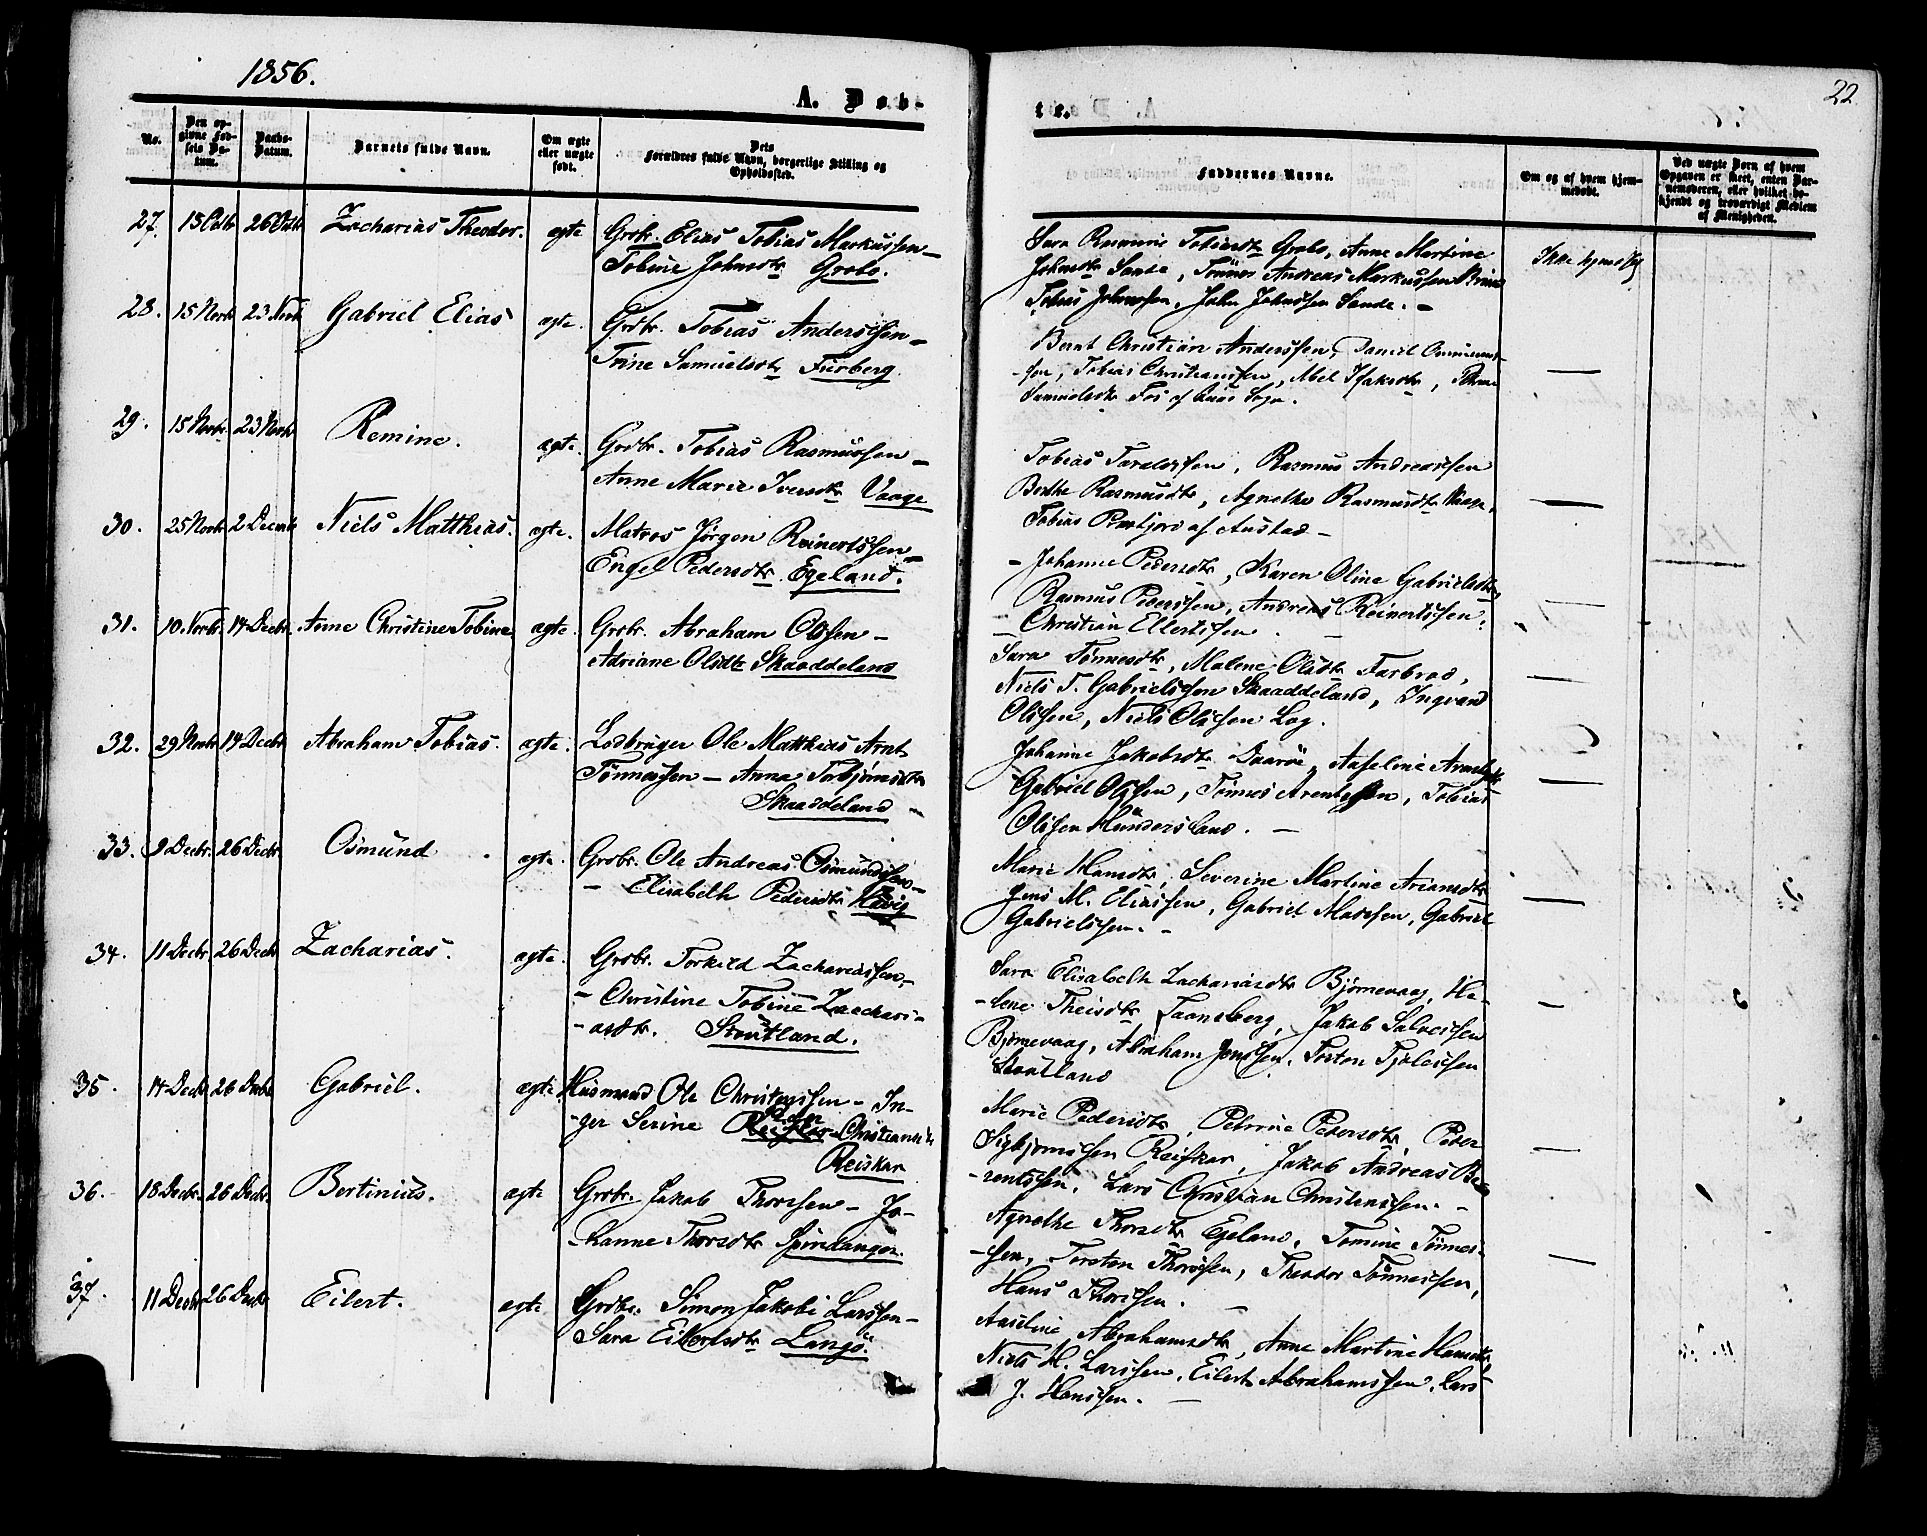 1856.
22
A. Døb-
te.
No.
Den op-
givne Fød-
sels Da-
tum.
Daabs-
Datum.
Barnets fulde Navn.
Om ægte
eller uægte
født.
Dets
Forældres fulde Navn, borgerlige Stilling og
Opholdssted.
Faddernes Navne.
Om og af hvem hjem-
medøbt.
Ved uægte Børn af hvem
Opgaven er skeet, enten Bar-
nemoderen, eller hvilket be-
kjendt og troværdigt Medlem
af Menigheden.
27. 13 Octbr 26 Octbr Zacharias Theodor. ægte Grdbr. Elias Tobias Markussen –
Tobine Johnsdtr Grobo.
Sara Rasmine Tobiasdtr Grobo, Anne Martine
Johnsdtr Sande, Tönnes Andreas Markussen
Tobias Johnsen, John Johnssen Sande. –
Ikke hjemdøbt
28. 15 Novbr 23 Novbr Gabriel Elias ægte. Grdbr. Tobias Anderssen –
Trine Samuelsdtr Furberg.
Bernt Christian Anderssen, Daniel Ommunds-
-sen, Tobias Christianssen, Abel Isaksdtr,
Samuelsdtr Fos af Sogn.
—
29. 15 Novbr. 23 Novbr Remine. ægte. Grdbr. Tobias Rasmussen –
Anne Marie Iversdtr Vaage
Tobias Taraldssen, Rasmus Andreassen
Berthe Rasmusdtr, Agnethe Rasmusdtr Vaage,
Tobias af Austad –
—
30. 25 Novbr 2 Decmbr Niels Matthias. ægte. Matros Jörgen Reinertssen –
Engel Pedersdtr Egeland.
– Johanne Pedersdtr, Karen Oline Gabrielsdtr,
Rasmus Pederssen, Andreas Reinertssen,
– Christian Ellertssen. –
—
31. 10 Novbr. 14 Decbr. Anne Christine Tobine ægte. Grdbr. Abraham Olssen –
Adriane Olsdtr Skaaddeland
Sara Tönnesdtr, Malene Olsdtr Farbrod,
Niels T. Gabrielssen Skaaddeland, Ingvard
Olssen, Niels Olssen Log.
—
32. 29 Novbr 14 Decbr. Abraham Tobias. ægte. Lodbruger Ole Matthias Arnt
Tönnessen – Anna Torbjörnsdtr
Skaaddeland –
Johanne Jakobsdtr Daaröe,
Gabriel Olssen, Tönnes Arentssen, Tobias
Olssen Hundersland. –
—
33. 9 Decbr. 26 Decbr. Osmund. ægte. Grdbr. Ole Andreas Osmundssen –
– Elisabeth Pedersdtr Hävig
Marie Hansdtr, Severine Martine Ariansdtr
Jens M. Eliassen, Gabriel Madssen, Gabriel
Gabrielssen. –
—
34. 11 Decbr 26 Decbr Zacharias. ægte. Grdbr. Torkild Zachariassen –
– Christine Tobine Zachari-
-asdtr. Stoutland.
Sara Elisabeth Zachariasdtr Björnevaag, He-
-lene Theisdtr Taansberg, Jakob Salvessen
Björnevaag, Abraham Jonssen, Torten Tjölessen
Stoutland
—
35. 14 Decbr 26 Decbr Gabriel. ægte Husmand Ole Christenssen – In-
-ger Serine Christiansdtr
Reiskar
Marie Pedersdtr, Petrine Pedersdtr, Peder
Sigbjörnssen Reiskar, Jakob Andreas Be-
-rentssen, Lars Christian Christenssen. –
—
36. 18 Decbr. 26 Decbr. Bertinius. ægte Grdbr. Jakob Thorssen – Jo-
-hanne Thorsdtr Spindanger.
Agnethe Thorsdtr Egeland, Tomine Tönnes-
-sen, Torsten Thorssen, Theodor Tönnessen,
Hans Thorssen. –
—
37. 11 Decbr 26 Decbr Eilert. ægte Grdbr. Simon Jakobi Larssen –
Sara Eilertsdtr Langö.
Aaseline Abrahamsdtr, Anne Martine Hansdtr,
Niels H. Larssen, Eilert Abrahamssen, Lars
J. Hanssen. –